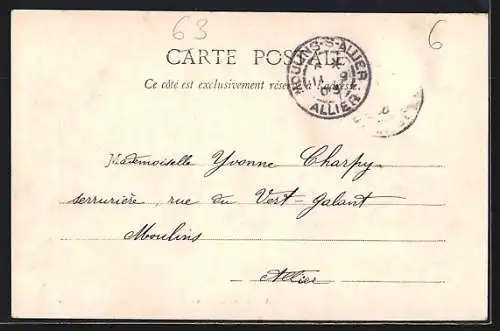 63
6
CARTE POSTALE
Ce côté est exclusivement réservé à l'adresse.
MOULINS-S-ALLIER
ALLIER
Mademoiselle Yvonne Charpy
serrurière, rue du Vert=galant
Moulins
Allier